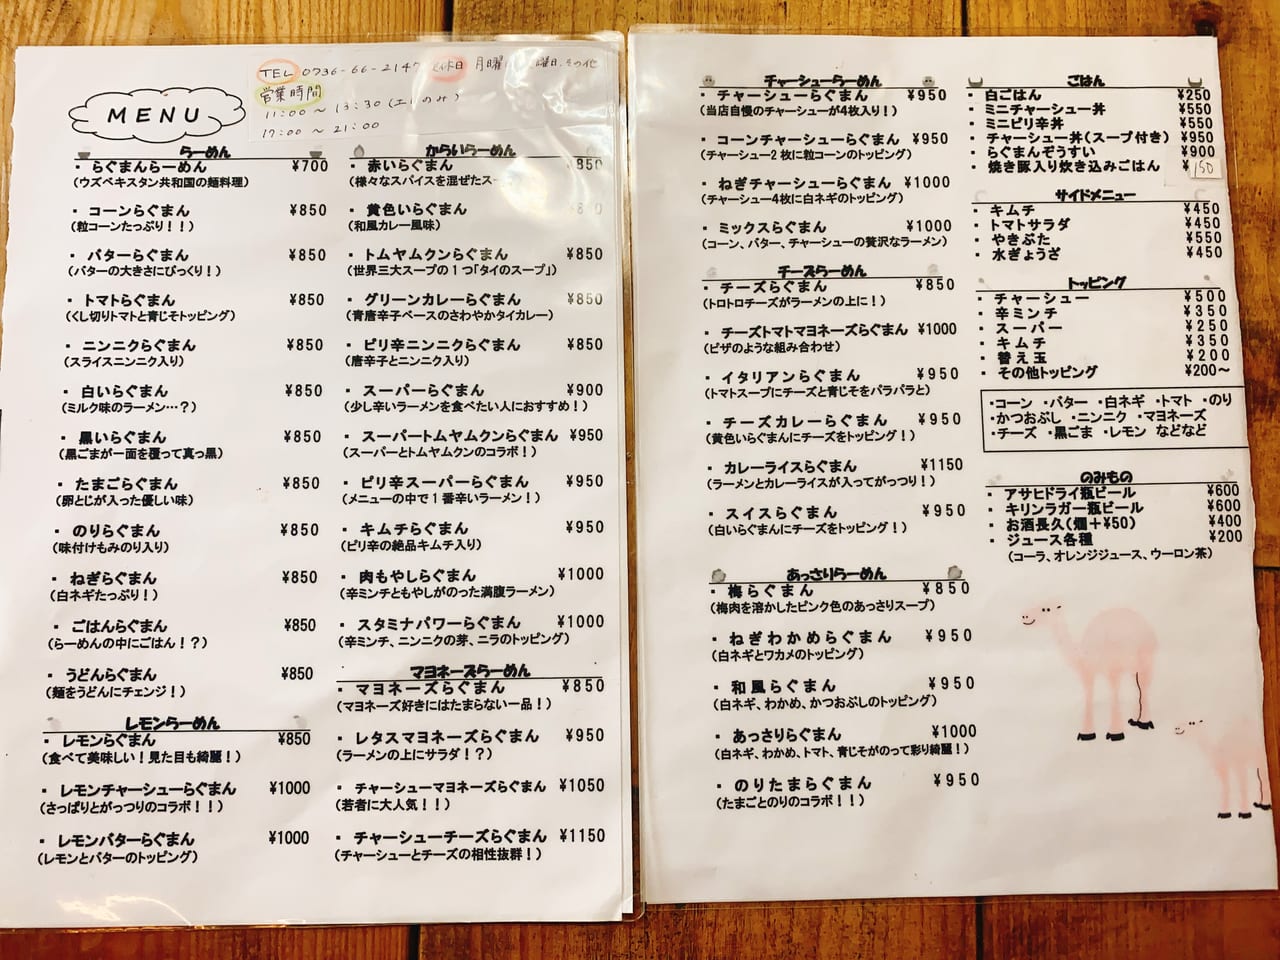 MENU
TEL 0736-66-2147 定休日 月曜
営業時間
11:00～13:30(土日のみ)
17:00～21:00
らーめん
・らぐまんらーめん ¥700
(ウズベキスタン共和国の麺料理)
・コーンらぐまん ¥850
(粒コーンたっぷり!!)
・バターらぐまん ¥850
(バターの大きさにびっくり!)
・トマトらぐまん ¥850
(くし切りトマトと青じそトッピング)
・ニンニクらぐまん ¥850
(スライスニンニク入り)
・白いらぐまん ¥850
(ミルク味のラーメン…?)
・黒いらぐまん ¥850
(黒ごまが一面を覆って真っ黒)
・たまごらぐまん ¥850
(卵とじが入った優しい味)
・のりらぐまん ¥850
(味付けもみのり入り)
・ねぎらぐまん ¥850
(白ネギたっぷり!)
・ごはんらぐまん ¥850
(らーめんの中にごはん!?)
・うどんらぐまん ¥850
(麺をうどんにチェンジ!)
レモンらーめん
・レモンらぐまん ¥850
(食べて美味しい!見た目も綺麗!)
・レモンチャーシューらぐまん ¥1000
(さっぱりとがっつりのコラボ!!)
・レモンバターらぐまん ¥1000
(レモンとバターのトッピング)
からいらーめん
・赤いらぐまん 850
(様々なスパイスを混ぜたスー
・黄色いらぐまん
(和風カレー風味)
・トムヤムクンらぐまん ¥850
(世界三大スープの1つ「タイのスープ」)
・グリーンカレーらぐまん ¥850
(青唐辛子ベースのさわやかタイカレー)
・ピリ辛ニンニクらぐまん ¥850
(唐辛子とニンニク入り)
・スーパーらぐまん ¥900
(少し辛いラーメンを食べたい人におすすめ!)
・スーパートムヤムクンらぐまん ¥950
(スーパーとトムヤムクンのコラボ!)
・ピリ辛スーパーらぐまん ¥950
(メニューの中で1番辛いラーメン!)
・キムチらぐまん ¥950
(ピリ辛の絶品キムチ入り)
・肉もやしらぐまん ¥1000
(辛ミンチともやしがのった満腹ラーメン)
・スタミナパワーらぐまん ¥1000
(辛ミンチ、ニンニクの芽、ニラのトッピング)
マヨネーズらーめん
・マヨネーズらぐまん ¥850
(マヨネーズ好きにはたまらない一品!)
・レタスマヨネーズらぐまん ¥950
(ラーメンの上にサラダ!?)
・チャーシューマヨネーズらぐまん ¥1050
(若者に大人気!!)
・チャーシューチーズらぐまん ¥1150
(チャーシューとチーズの相性抜群!)
チャーシューらーめん
・チャーシューらぐまん ¥950
(当店自慢のチャーシューが4枚入り!)
・コーンチャーシューらぐまん ¥950
(チャーシュー2枚に粒コーンのトッピング)
・ねぎチャーシューらぐまん ¥1000
(チャーシュー4枚に白ネギのトッピング)
・ミックスらぐまん ¥1000
(コーン、バター、チャーシューの贅沢なラーメン)
チーズらーめん
・チーズらぐまん ¥850
(トロトロチーズがラーメンの上に!)
・チーズトマトマヨネーズらぐまん ¥1000
(ピザのような組み合わせ)
・イタリアンらぐまん ¥950
(トマトスープにチーズと青じそをパラパラと)
・チーズカレーらぐまん ¥950
(黄色いらぐまんにチーズをトッピング!)
・カレーライスらぐまん ¥1150
(ラーメンとカレーライスが入ってがっつり!)
・スイスらぐまん ¥950
(白いらぐまんにチーズをトッピング!)
あっさりらーめん
・梅らぐまん ¥850
(梅肉を溶かしたピンク色のあっさりスープ)
・ねぎわかめらぐまん ¥950
(白ネギとワカメのトッピング)
・和風らぐまん ¥950
(白ネギ、わかめ、かつおぶしのトッピング)
・あっさりらぐまん ¥1000
(白ネギ、わかめ、トマト、青じそがのって彩り綺麗!)
・のりたまらぐまん ¥950
(たまごとのりのコラボ!!)
ごはん
・白ごはん ¥250
・ミニチャーシュー丼 ¥550
・ミニピリ辛丼 ¥550
・チャーシュー丼(スープ付き) ¥950
・らぐまんぞうすい ¥900
・焼き豚入り炊き込みごはん ¥150
サイドメニュー
・キムチ ¥450
・トマトサラダ ¥450
・やきぶた ¥550
・水ぎょうざ ¥450
トッピング
・チャーシュー ¥500
・辛ミンチ ¥350
・スーパー ¥250
・キムチ ¥350
・替え玉 ¥200
・その他トッピング ¥200～
・コーン ・バター ・白ネギ ・トマト ・のり
・かつおぶし ・ニンニク ・マヨネーズ
・チーズ ・黒ごま ・レモン などなど
のみもの
・アサヒドライ瓶ビール ¥600
・キリンラガー瓶ビール ¥600
・お酒長久(燗+¥50) ¥400
・ジュース各種 ¥200
(コーラ、オレンジジュース、ウーロン茶)